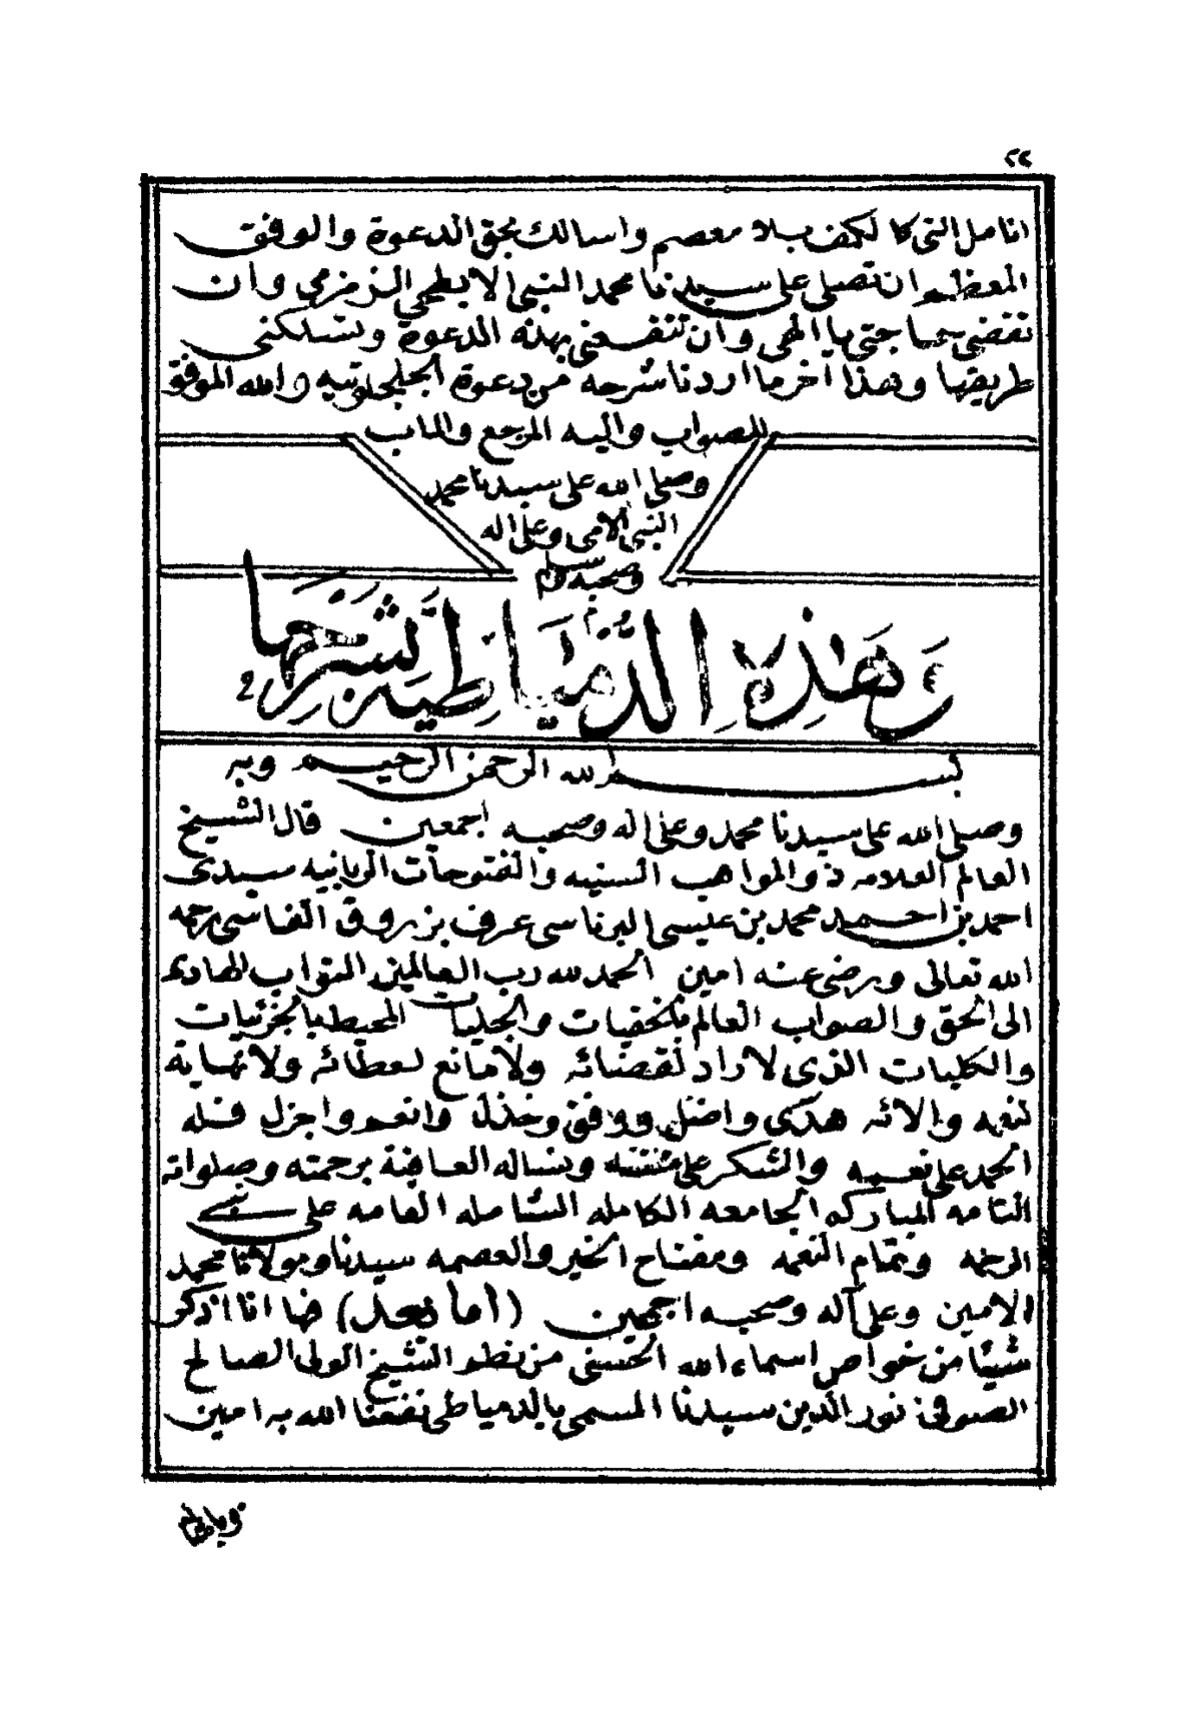 ٢٢
انامل التى كا لكف بلا معصم واسالك بحق الدعوة والوفق
المعظم ان تصلى على سيدنا محمد النبى الابطحى الزمزمي وان
تقضى حاجتى يا الهى وان تنفعنى بهذه الدعوة وتسلكنى
طريقها وهذا آخر ما اردنا شرحه من دعوة الجلجلوتيه والله الموفق
للصواب واليه المرجع والماب
وصلى الله على سيدنا محمد
النبى الامى وعلى اله
وصحبه وسلم
وَهَذِهِ الدِّميَاطِيَّه بِشَرْحِهَا
بسم الله الرحمن الرحيم وبه
وصلى الله على سيدنا محمد وعلى اله وصحبه اجمعين قال الشيخ
العالم العلامه ذو المواهب السنيه والفتوحات الربانيه سيدى
احمد بن احمد محمد بن عيسى البرناسى عرف بزروق الفاسى رحمه
الله تعالى ورضى عنه امين الحمد لله رب العالمين التواب الهادى
الى الحق والصواب العالم بالخفيات والجليات المحيط بالجزئيات
والكليات الذى لا راد لقضائه ولا مانع لعطائه ولا نهاية
لنعمه والائه هدى واضل ووفق وخذل وانعم واجزل فله
الحمد على نعمه والشكر على مننه ونساله العافية برحمته وصلواته
التامه المباركه الجامعه الكامله الشامله العامه على نبى
الرحمه وتمام النعمه ومفتاح الخير والعصمه سيدنا ومولانا محمد
الامين وعلى آله وصحبه اجمعين (اما بعد) فها انا اذكر
شيئا من خواص اسماء الله الحسنى من نظم الشيخ الولى الصالح
الصوفى نور الدين سيدنا المسمى بالدمياطى نفعنا الله به امين